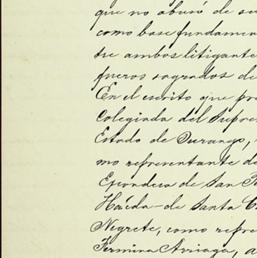 que no abusó de su
como base fundament
tre ambos litigante
fueros sagrados de
En el escrito que pre
Colegiada del Supre
Estado de Durango,
mo representante de
Esperadera de San
Hacda de Santa C
Negrete, como repre
Fermina Arriaga, a